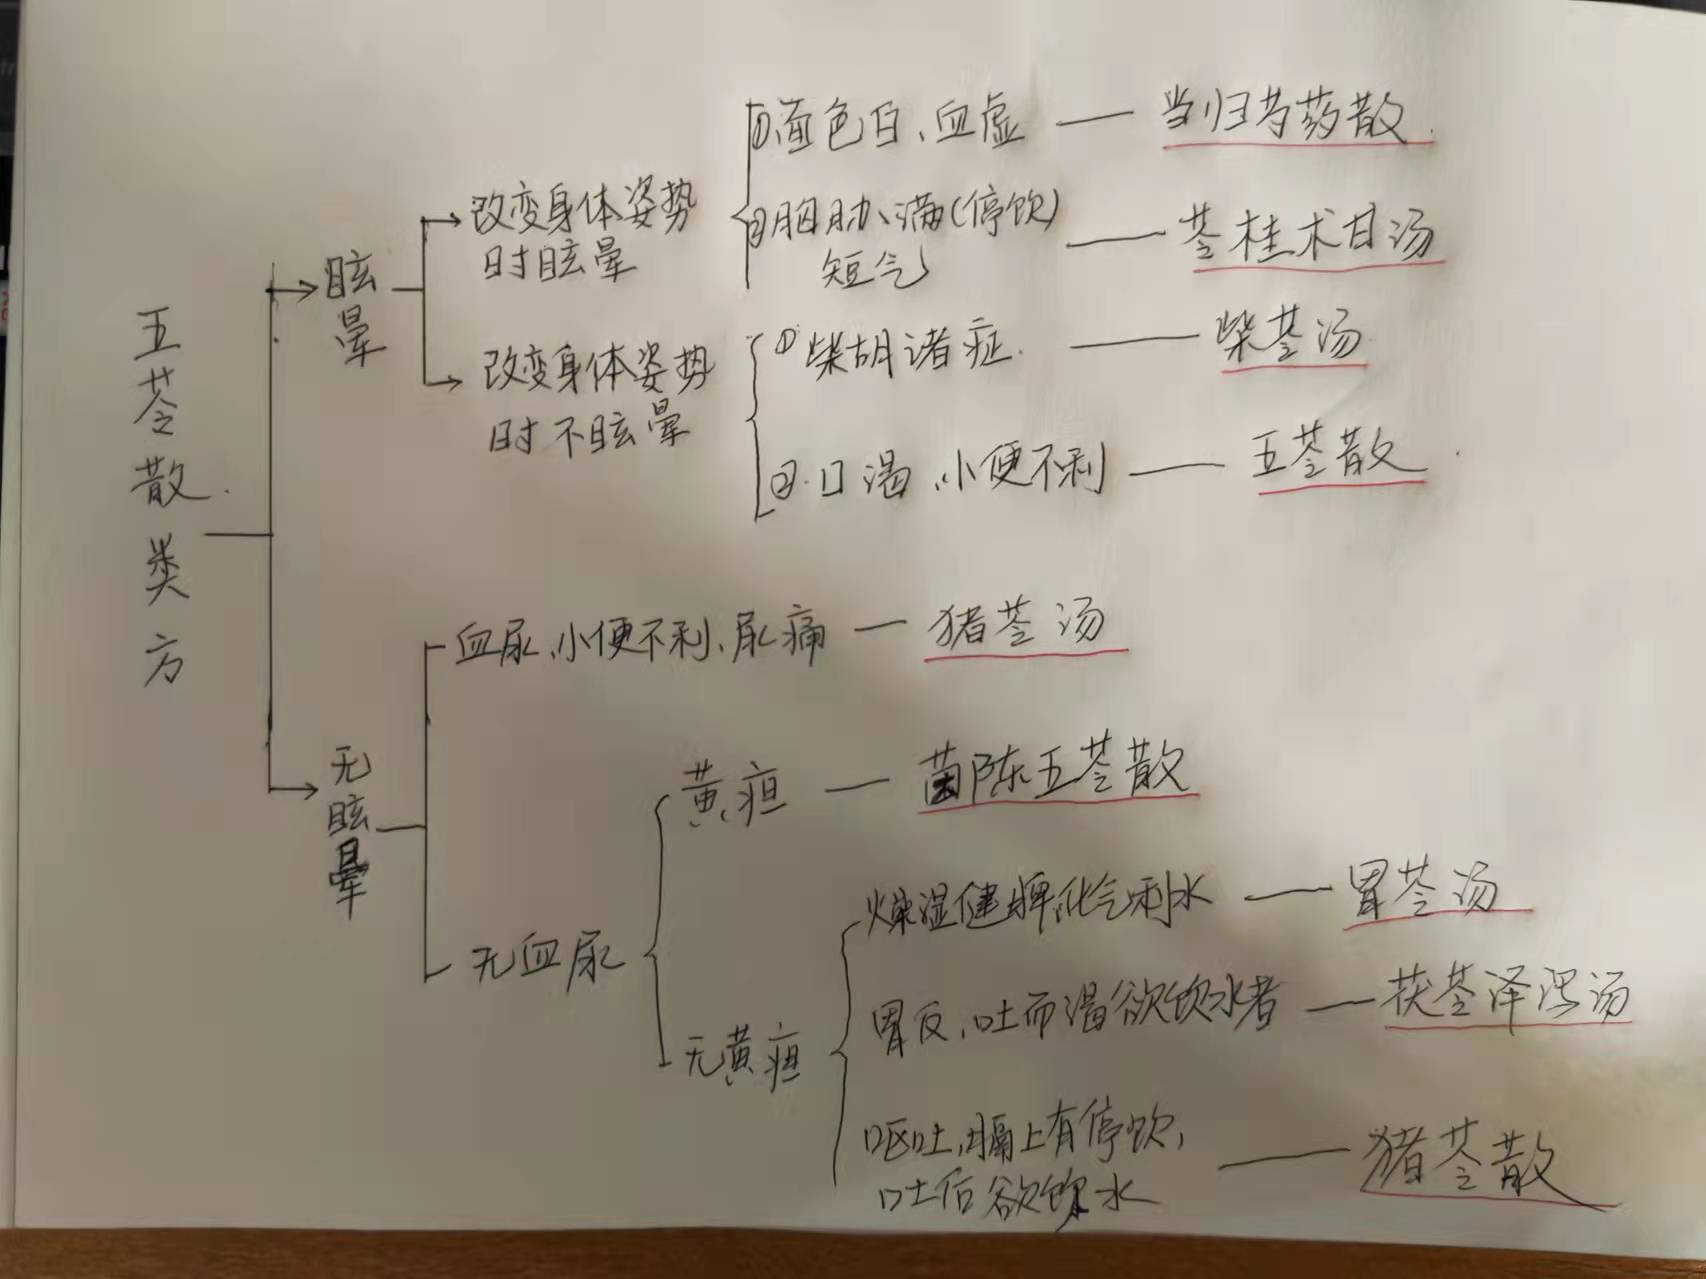 五苓散类方
眩晕
改变身体姿势
时眩晕
①面色白、血虚 — 当归芍药散
②胸胁满(停饮)
短气 — 苓桂术甘汤
改变身体姿势
时不眩晕
①柴胡诸症. — 柴苓汤
②.口渴、小便不利 — 五苓散
无眩晕
血尿、小便不利、尿痛 — 猪苓汤
无血尿
黄疸 — 茵陈五苓散
无黄疸
燥湿健脾,化气利水 — 胃苓汤
胃反、吐而渴欲饮水者 — 茯苓泽泻汤
呕吐,膈上有停饮,
吐后欲饮水 — 猪苓散